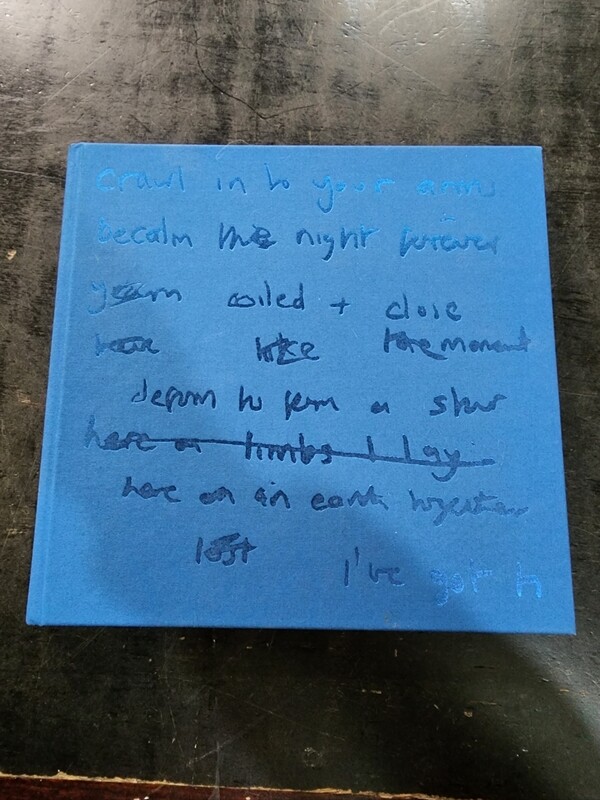 crawl in to your arms
becalm the night forever
yearn coiled + close
like the moment
deform to form a star
here on limbs I lay
here on an earth together
lost I've got to